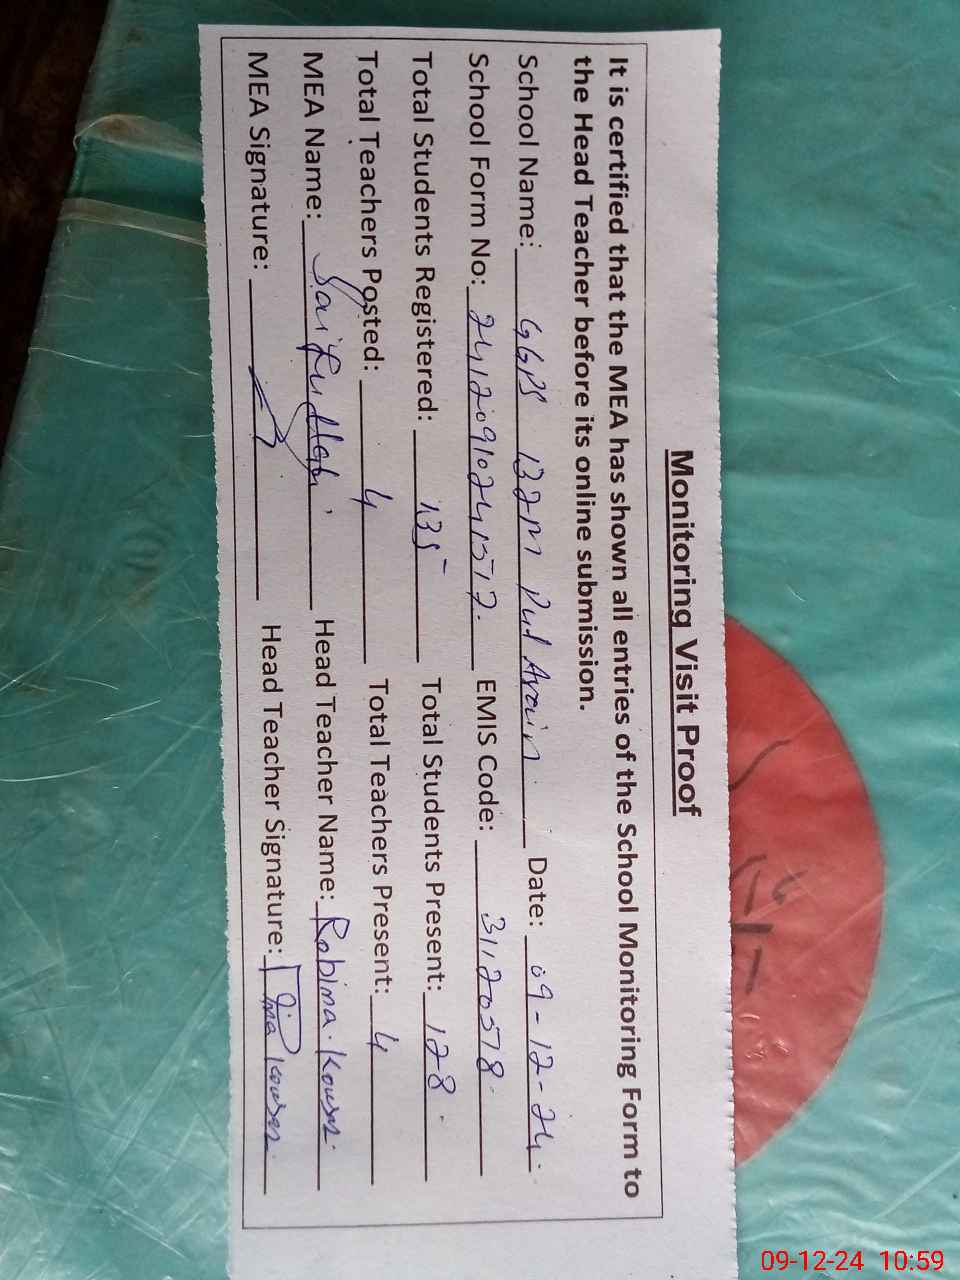 Monitoring Visit Proof
It is certified that the MEA has shown all entries of the School Monitoring Form to
the Head Teacher before its online submission.
School Name: GGPS 132M Pul Arain Date: 09-12-24
School Form No: 2412091024 EMIS Code: 31120578
Total Students Registered: 135 Total Students Present: 128
Total Teachers Posted: 4 Total Teachers Present: 4
MEA Name: Head Teacher Name: Robina Kouser
MEA Signature: Head Teacher Signature: Kouser
09-12-24 10:59